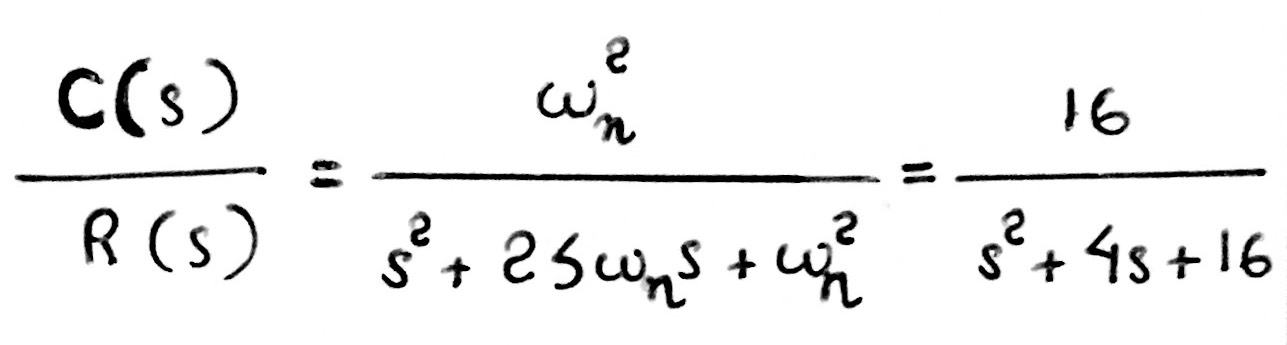 C(s) / R(s) = ωₙ² / s² + 2ζωₙs + ωₙ² = 16 / s² + 4s + 16